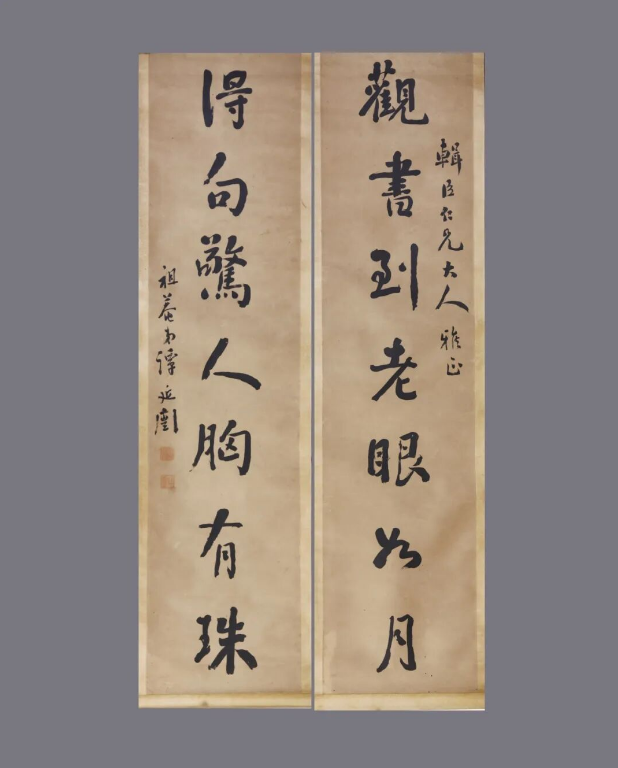 觀書到老眼如月
輯臣仁兄大人 雅正
得句驚人胸有珠
祖菴弟譚延闓